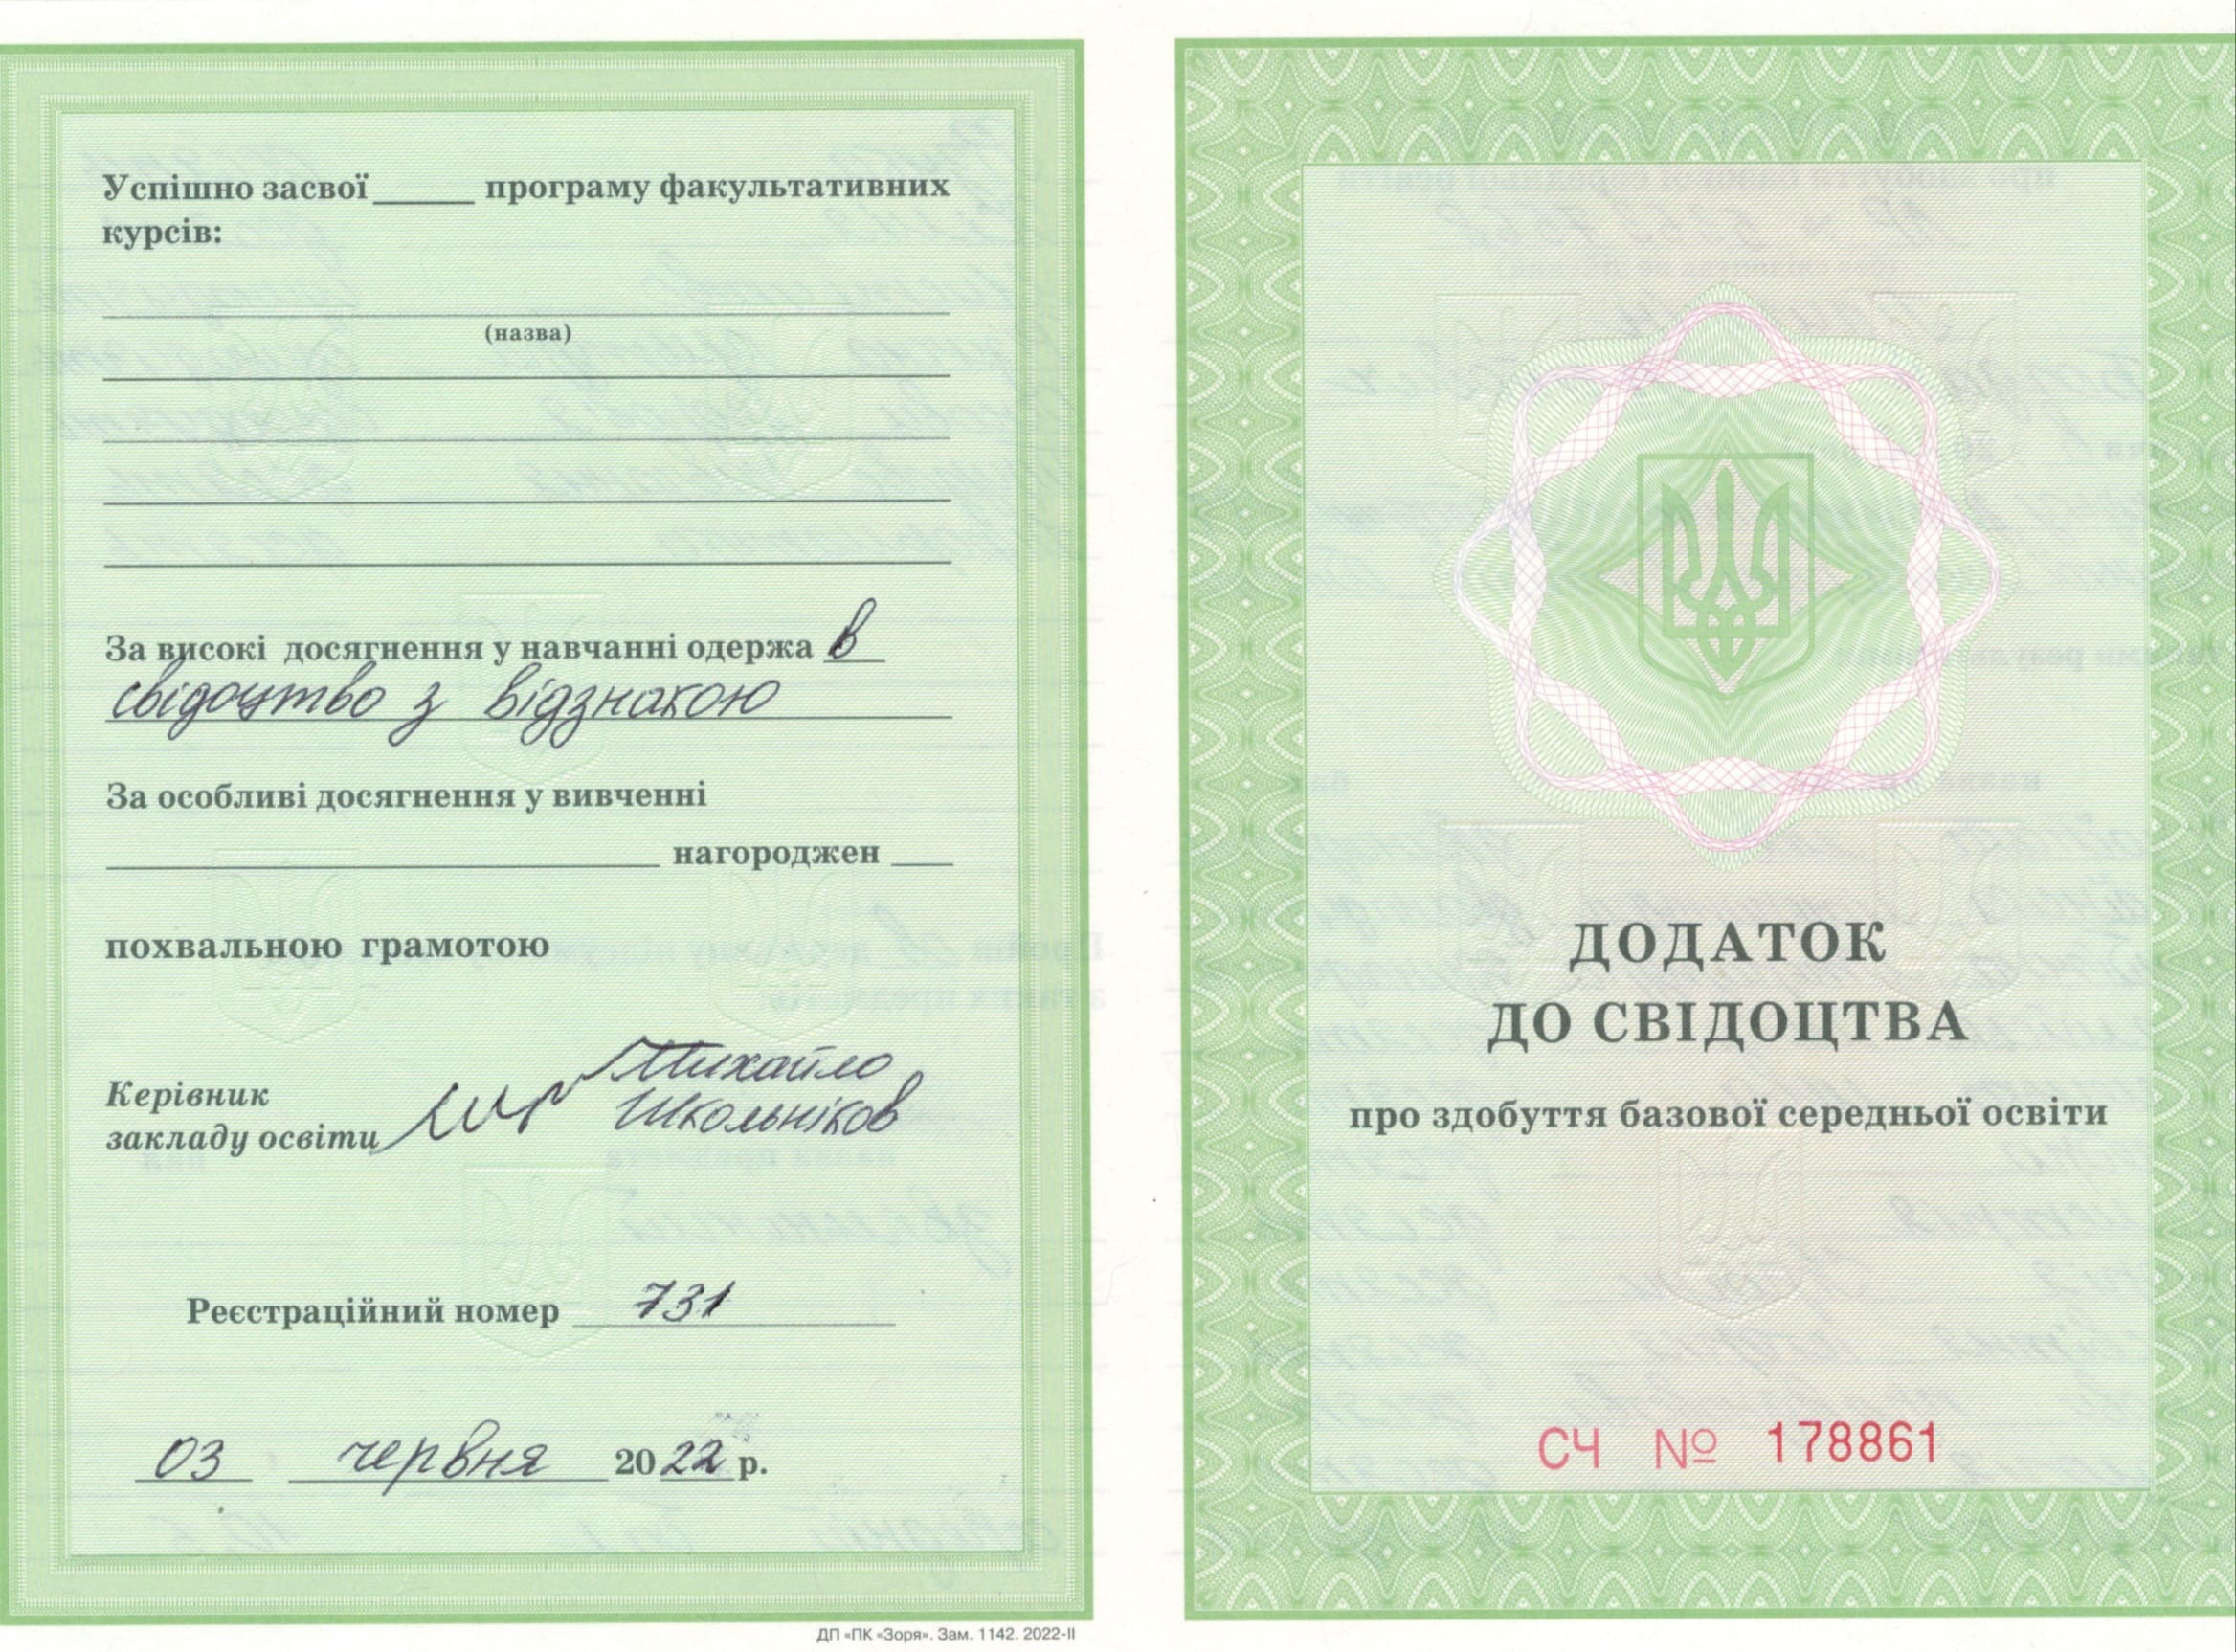 Успішно засвої_____ програму факультативних
курсів:
(назва)
За високі досягнення у навчанні одержав
свідоцтво з відзнакою
За особливі досягнення у вивченні
нагороджен ___
похвальною грамотою
Керівник
закладу освіти
Михайло
Школьніков
Реєстраційний номер 731
03 червня 2022 р.
ДП «ПК «Зоря». Зам. 1142. 2022-ІІ
ДОДАТОК
ДО СВІДОЦТВА
про здобуття базової середньої освіти
СЧ № 178861